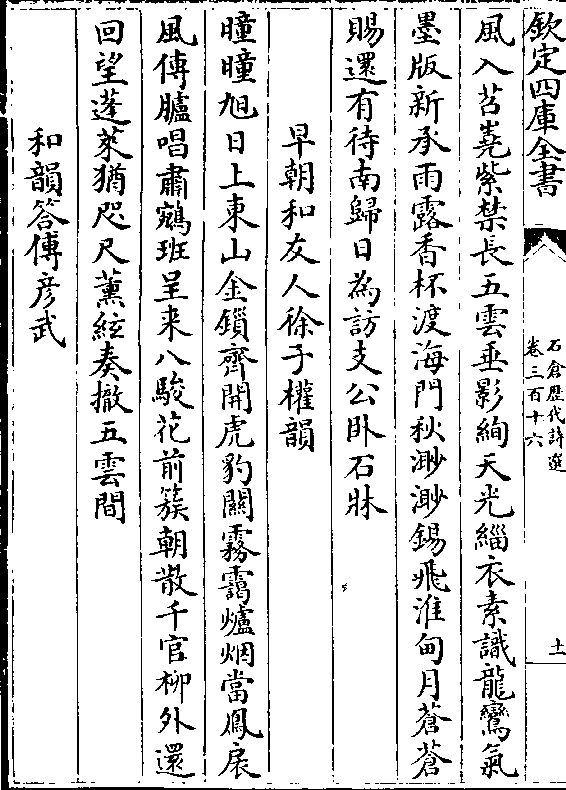 欽定四庫全書
石倉歴代詩選
卷三百十六
土
風入苕嶤紫禁長五雲垂影絢天光緇衣素識龍鸞氣
墨版新承雨露香杯渡海門秋渺渺錫飛淮甸月蒼蒼
賜還有待南歸日為訪支公卧石牀
早朝和友人徐子權韻
曈曈旭日上東山金鎖齊開虎豹關霧靄爐烟當鳳扆
風傳臚唱肅鵷班呈来八駿花前簇朝散千官柳外還
回望蓬萊猶咫尺薰絃奏撤五雲間
和韻答傅彦武